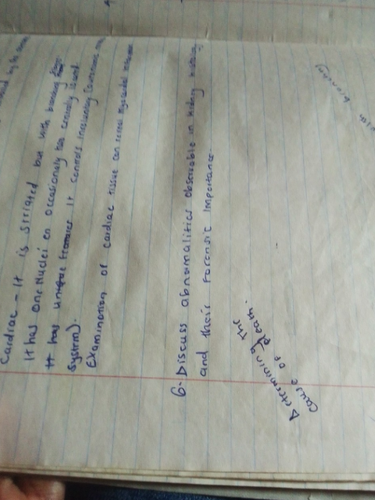 Cardiac - It is striated but with branching
It has one Nuclei or occasionaly two centrally located
It has unique features It controls involuntary
System).
Examination of cardiac tissue can reveal myocardial
6. Discuss abnormalities observable in kidney
and their Forensic Importance.
Determining the
cause of Death.